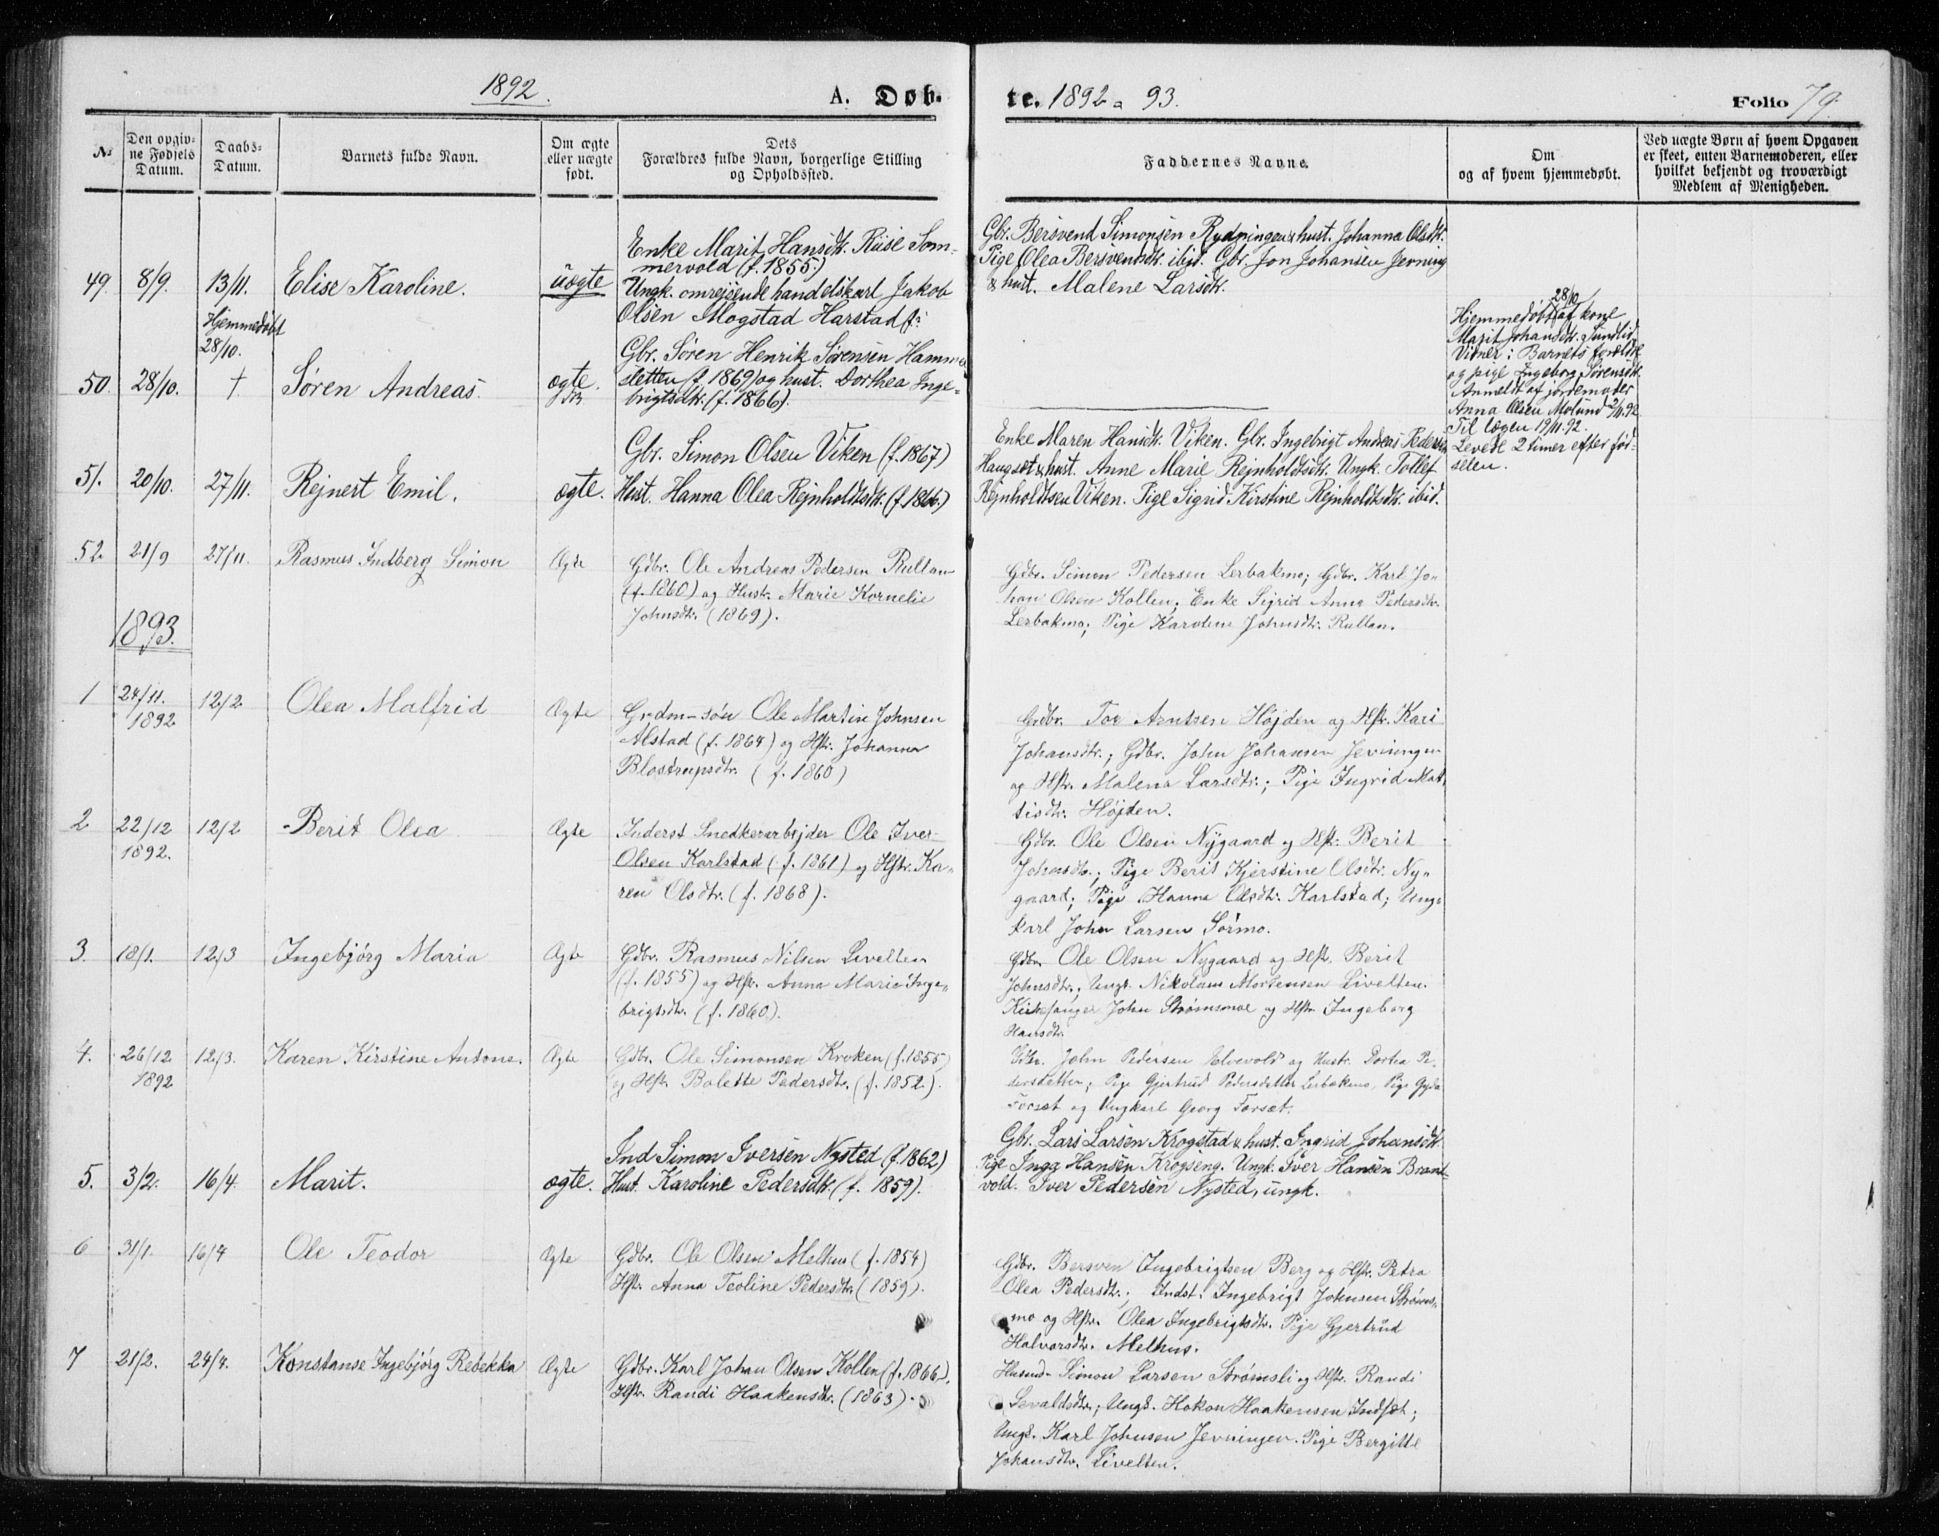 1892.
A. Døb-
te. 1892 = 93.
Folio 79.
№
Den opgiv-
ne Fødsels
Datum.
Daabs-
Datum.
Barnets fulde Navn.
Om ægte
eller uægte
født.
Dets
Forældres fulde Navn, borgerlige Stilling
og Opholdssted.
Faddernes Navne.
Om
og af hvem hjemmedøbt.
Ved uægte Børn af hvem Opgaven
er skeet, enten Barnemoderen, eller
hvilket bekjendt og troværdigt
Medlem af Menigheden.
49. 8/9. 13/11. Elise Karoline. uægte
Enke Marit Hansdtr. Riise Som-
mervold (f. 1855.)
Ungk. omrejsende handelskarl Jakob
Olsen Mogstad Harstad f:
Gbr. Bersvend Simonsen Rydningen & hust. Johanna Olsdtr.
Pige Olea Bersvendsdtr. ibid. Gbr. Jon Johansen Jevning
& hust. Malene Larsdtr.
50. 28/10. Hjemmedøbt
28/10.
† Søren Andreas. ægte.
Gbr. Søren Henrik Sørensen Hammer
sletten (f. 1869) og hust. Dorthea Inge-
brigtsdtr. (f. 1866).
28/10
Hjemmedøbt af kone
Marit Johansdtr. Sundlid
Vidner: Barnets forældre
og pige Ingeborg Sørensdtr.
Anmeldt af jordemoder
Anna Olsen Molund 2/11.92.
Til lægen 19/11.92.
Levede 2 timer efter fød-
selen.
51. 20/10. 27/11. Rejnert Emil. ægte.
Gbr. Simon Olsen Viken (f. 1867)
Hust. Hanna Olea Rejnholdtsdtr. (f. 1866.)
Enke Maren Hansdtr. Viken. Gbr. Ingebrigt Andreas Pedersen
Haugset & hust. Anne Marie Rejnholdtsdtr. Ungk. Tollef
Rejnholdtsen Viken. Pige Sigrid Kirstine Rejnholdtsdtr. ibid.
52 21/9 27/11. Rasmus Indberg Simon Ægte
Gdbr. Ole Andreas Pedersen Rullan
(f. 1860) og Hust. Marie Kornelie
Johnsdtr. (1869).
Gdbr. Simon Pedersen Lerbakmo; Gdbr. Karl Jo-
han Olsen Kollen; Enke Sigrid Anna Pedersdtr.
Lerbakmo; Pige Karoline Johnsdtr. Rullan.
1893.
1 24/11.
1892 12/2 Olea Malfrid Ægte
Grdm-søn Ole Martin Johnsen
Alstad (f. 1864) og Hstr. Johanna
Blostrupsdtr. (f. 1860)
Grdbr. Tor Arntsen Højden og Hstr. Kari
Johansdtr.; Gdbr. John Johansen Jevningen
og Hstr. Malena Larsdtr.; Pige Ingrid Mat-
tisdtr. Højden.
2 22/12
1892. 12/2 Berit Olea Ægte
Inderst Snedkerarbejder Ole Iver-
Olsen Karlstad (f. 1861) og Hstr. Ka-
ren Olsdtr. (f. 1868).
Gdbr. Ole Olsen Nygaard og Hstr. Berit
Johnsdtr.; Pige Berit Kjerstine Olsdtr. Ny-
gaard; Pige Hanna Olsdtr. Karlstad; Ung-
karl John Larsen Sørmo.
3. 18/1. 12/3 Ingebjørg Maria Ægte
Gdbr. Rasmus Nilsen Livelten
(f. 1855) og Hstr. Anna Marie Inge-
brigtsdtr. (f. 1860).
Gdbr. Ole Olsen Nygaard og Hstr. Berit
Johnsdtr., Ungk. Nikolaus Mortensen Livelten.
Kirkesanger John Strømsmoe og Hstr. Ingeborg
Hansdtr.
4. 26/12
1892 12/3. Karen Kirstine Antone. Ægte
Gdbr. Ole Simonsen Kroken (f. 1855)
og Hstr. Bolette Pedersdtr. (f. 1852).
Gdbr. John Pedersen Elvevold og Hustr. Dortea Pe-
dersdatter; Pige Gjertrud Pedersdatter Lerbakmo, Pige Gyda
Forset og Ungkarl Georg Forset.
5. 3/2. 16/4. Marit. ægte.
Ind Simon Iversen Nysted (f. 1862)
Hust. Karoline Pedersdtr. (f. 1859).
Gbr. Lars Larsen Krogstad & hust. Ingrid Johansdtr.
Pige Inga Hansen Krogseng. Ungk. Iver Hansen Brand-
vold. Iver Pedersen Nysted, ungk.
6 31/1. 16/4 Ole Teodor Ægte
Gdbr. Ole Olsen Melhus (f. 1854)
Hstr. Anna Teoline Pedersdtr. (1859).
Gdbr. Bersven Ingebrigtsen Berg og Hstr. Petra
Olea Pedersdtr.; Indst. Ingebrigt Johnsen Strøms-
mo og Hstr. Olea Ingebrigtsdtr. Pige Gjertrud
Halvorsdtr. Melhus.
7 21/2. 24/4. Konstanse Ingebjørg Rebekka Ægte
Gdbr. Karl Johan Olsen Kollen (f. 1866).
Hstr. Randi Haakensdtr. (1863).
Husmd. Simon Larsen Strømsli og Hstr. Randi
Sevaldsdtr.; Ungk. Hokon Haakensen Indset;
Ungk. Karl Johnsen Jevningen. Pige Bergitte
Johansdtr. Livelten.